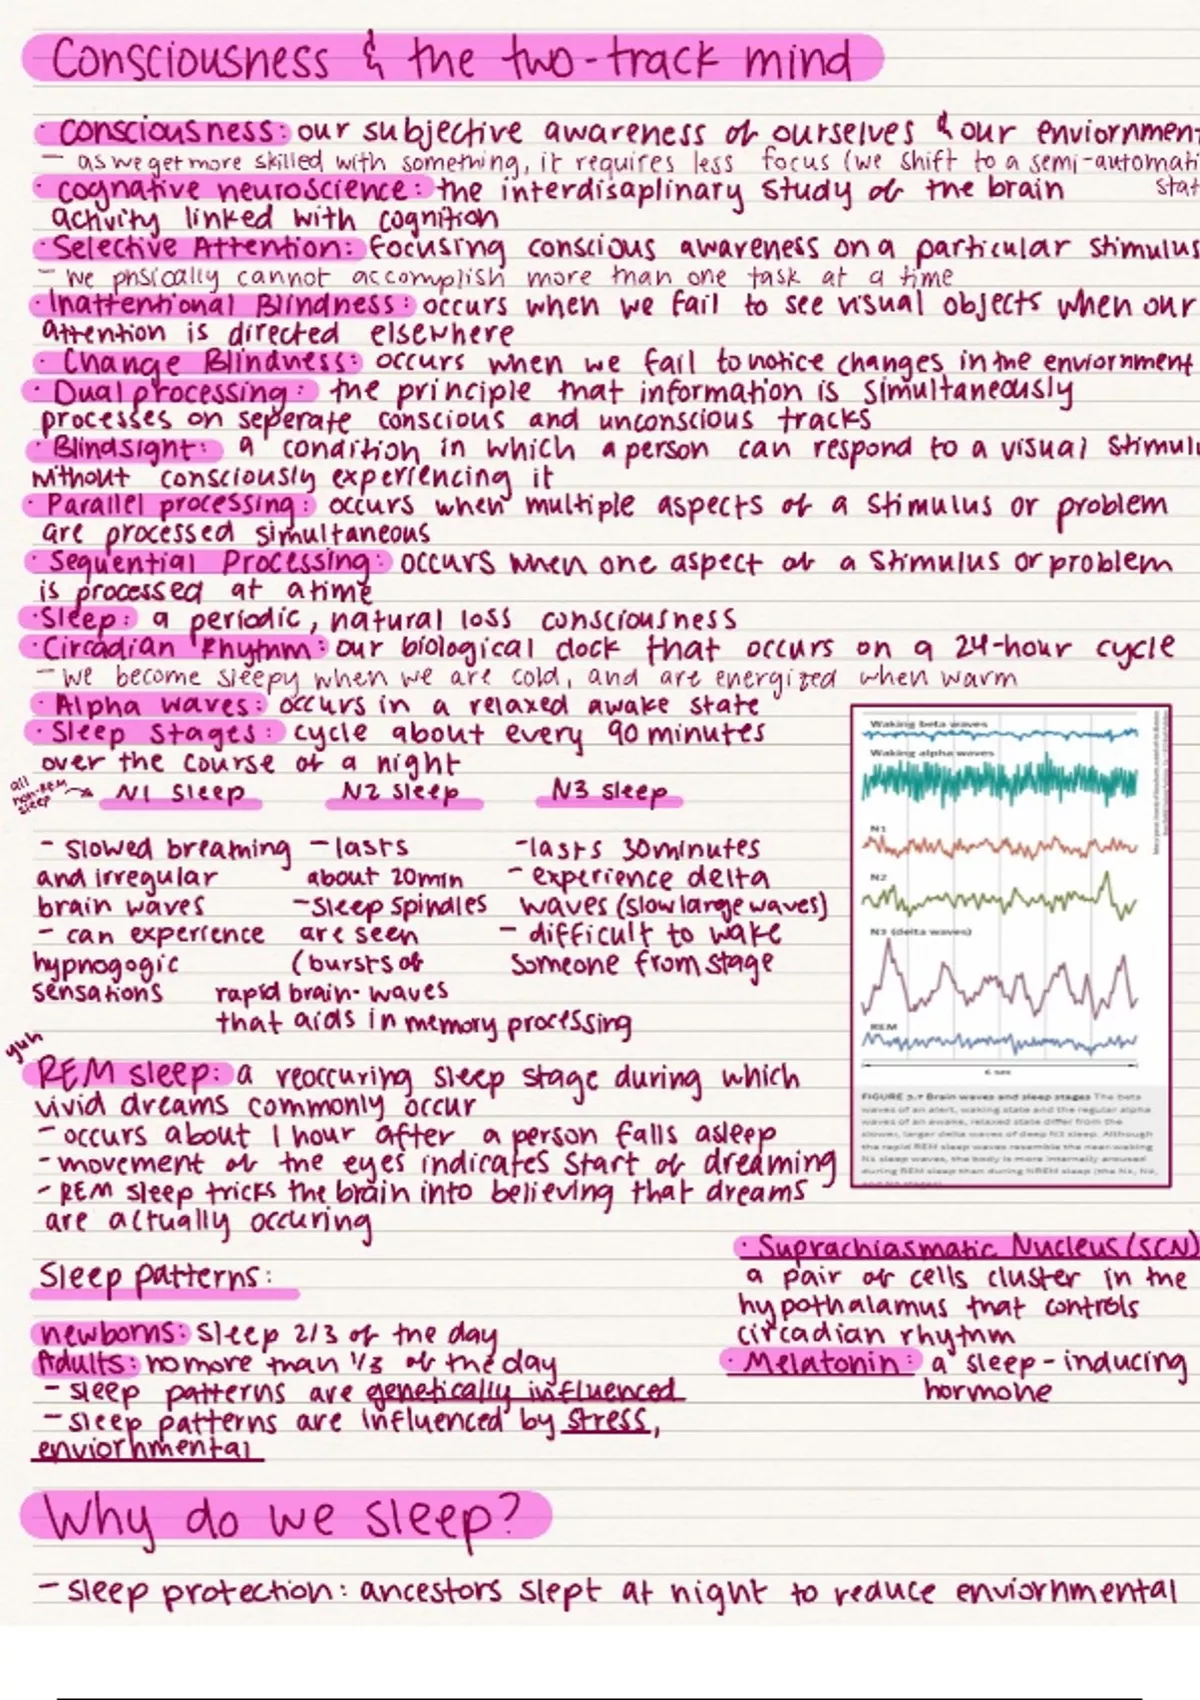 Consciousness & the two-track mind
· Consciousness: our subjective awareness of ourselves & our enviornment
- as we get more skilled with something, it requires less focus (we shift to a semi-automati
stat
· cognative neuroscience: the interdisaplinary study of the brain
activity linked with cognition
· Selective Attention: focusing conscious awareness on a particular stimulus
- we phsically cannot accomplish more than one task at a time
· Inattentional Blindness: occurs when we fail to see visual objects when our
attention is directed elsewhere
· Change Blindness: occurs when we fail to notice changes in the enviornment
· Dual processing: the principle that information is simultaneously
processes on seperate conscious and unconscious tracks
· Blindsight: a condition in which a person can respond to a visual stimulu
without consciously experiencing it
· Parallel processing: occurs when multiple aspects of a stimulus or problem
are processed simultaneous
· Sequential Processing: occurs when one aspect of a stimulus or problem
is processed at a time
· Sleep: a periodic, natural loss consciousness
· Circadian Rhythm: our biological clock that occurs on a 24-hour cycle
- we become sleepy when we are cold, and are energized when warm
· Alpha waves: occurs in a relaxed awake state
· Sleep Stages: cycle about every 90 minutes
over the course of a night
all
non-REM
sleep
N1 sleep N2 sleep N3 sleep
- slowed breathing - lasts - lasts 30 minutes
and irregular about 20 min - experience delta
brain waves - sleep spindles waves (slow large waves)
- can experience are seen - difficult to wake
hypnogogic (bursts of someone from stage
sensations rapid brain-waves
that aids in memory processing
yuh
REM sleep: a reoccuring sleep stage during which
vivid dreams commonly occur
- occurs about 1 hour after a person falls asleep
- movement of the eyes indicates start of dreaming
- REM sleep tricks the brain into believing that dreams
are actually occuring
Waking beta waves
Waking alpha waves
N1
N2
N3 (delta waves)
REM
6 sec
FIGURE 3.7 Brain waves and sleep stages The beta
waves of an alert, waking state and the regular alpha
waves of an awake, relaxed state differ from the
slower, larger delta waves of deep N3 sleep. Although
the rapid REM sleep waves resemble the near-waking
N1 sleep waves, the body is more internally aroused
during REM sleep than during NREM sleep (the N1, N2,
and N3 stages).
Sleep patterns:
newborns: sleep 2/3 of the day
Adults: no more than 1/3 of the day
- sleep patterns are genetically influenced
- sleep patterns are influenced by stress,
enviornmental
· Suprachiasmatic Nucleus (SCN)
a pair of cells cluster in the
hypothalamus that controls
circadian rhythm
· Melatonin: a sleep-inducing
hormone
Why do we sleep?
- sleep protection: ancestors slept at night to reduce enviornmental